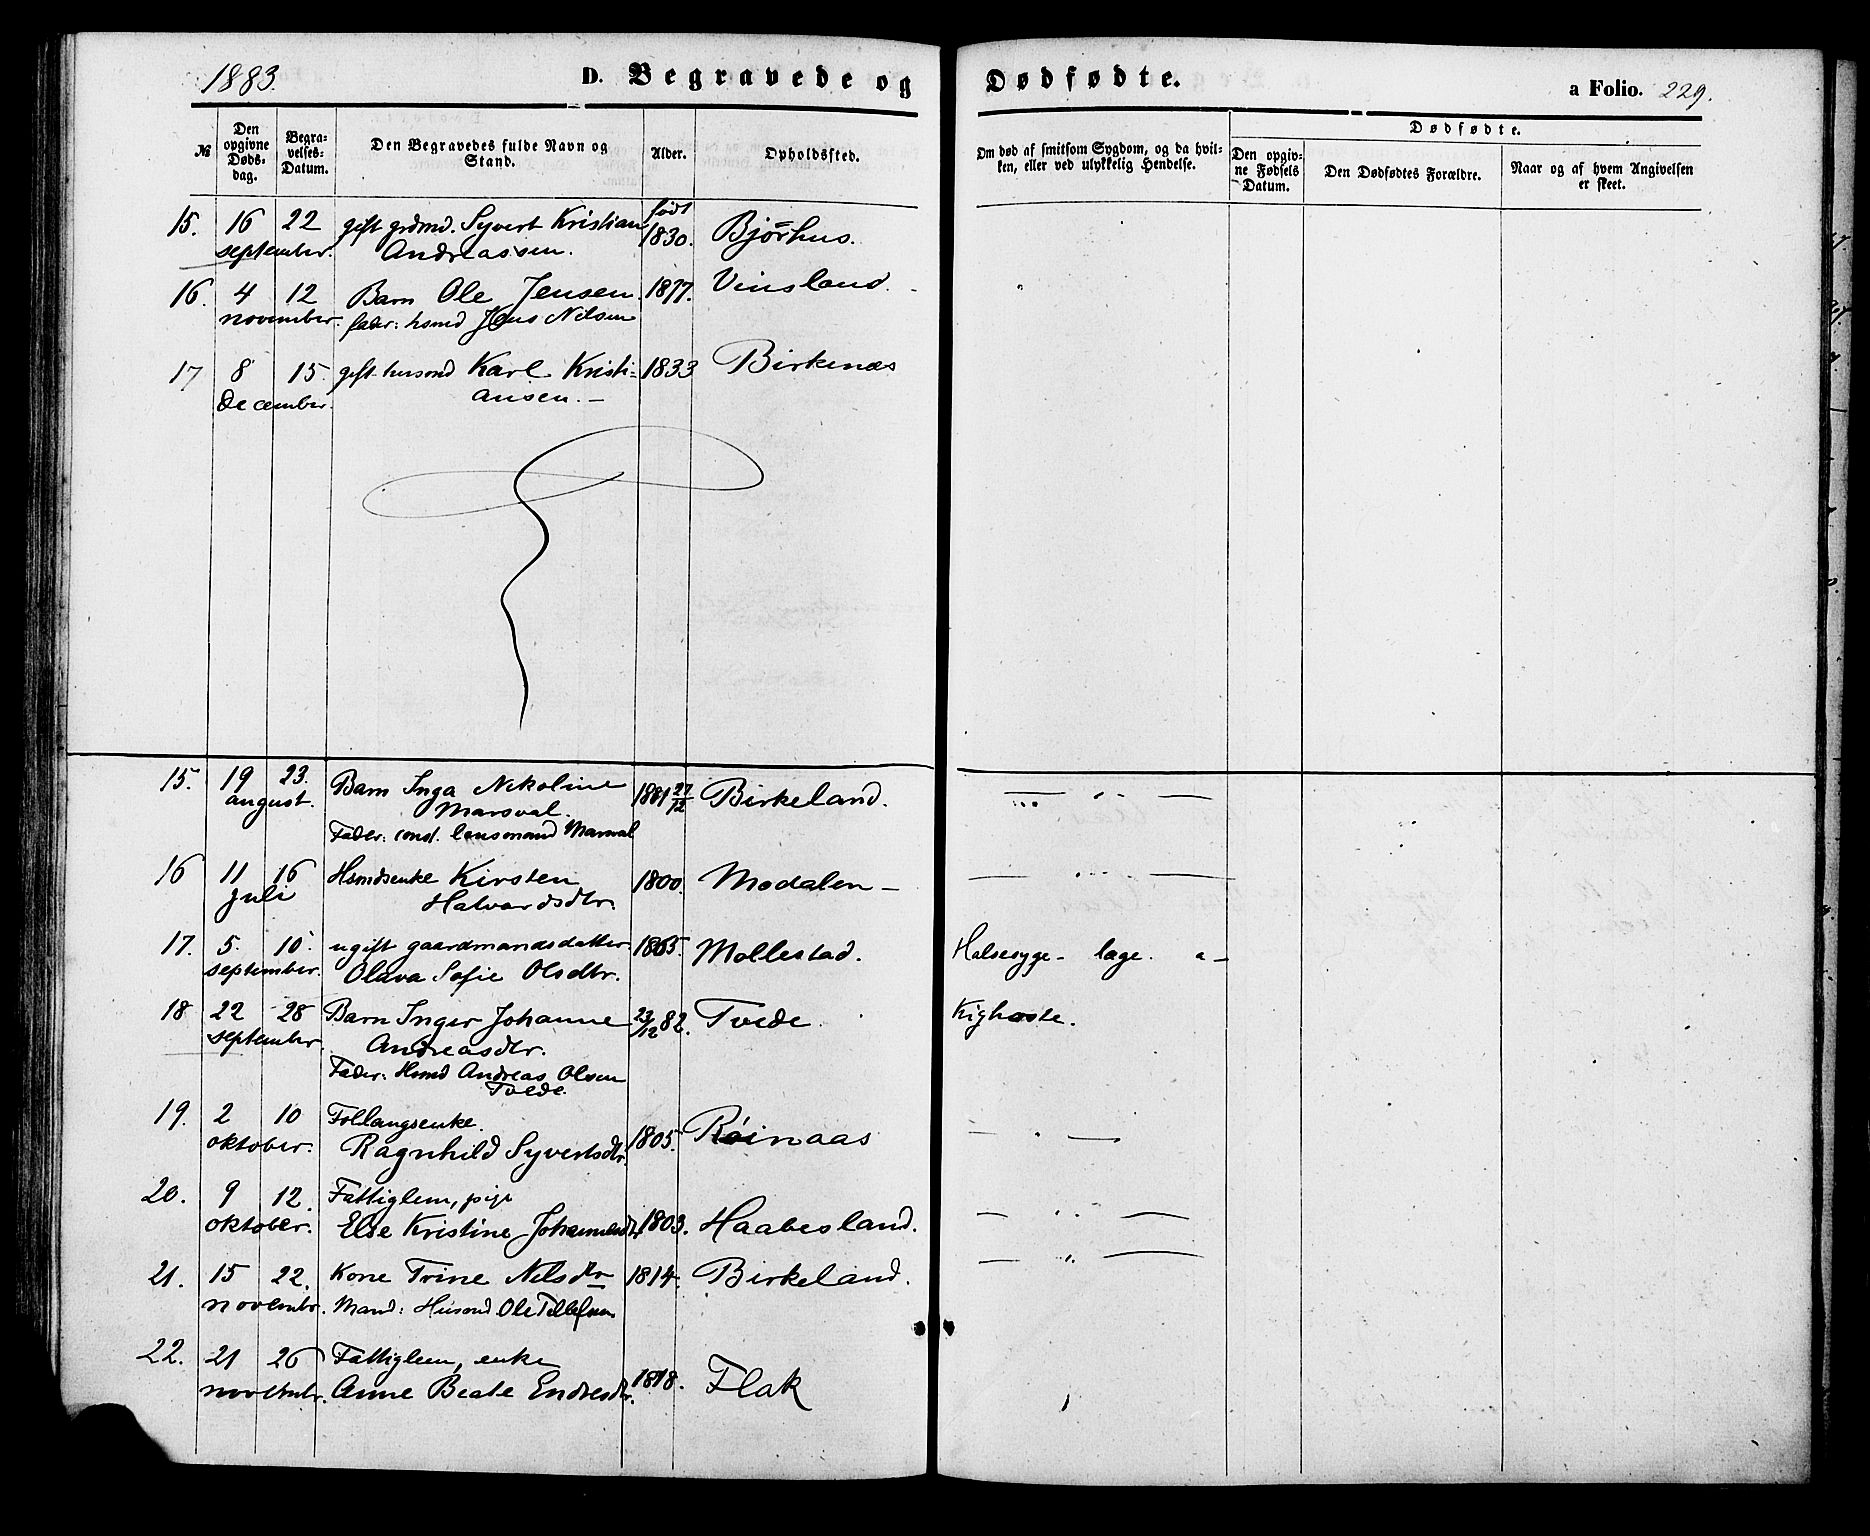 1883. D. Begravede og Dødfødte. a Folio. 229.
№
Den opgivne Døds-dag.
Begra-velses-Datum.
Den Begravedes fulde Navn og Stand.
Alder.
Opholdssted.
Om død af smitsom Sygdom, og da hvil-ken, eller ved ulykkelig Hendelse.
Dødfødte.
Den opgiv-ne Fødsels Datum.
Den Dødfødtes Forældre.
Naar og af hvem Angivelsen er skeet.
født
15. 16 22 gift grdmd. Syvert Kristian 1830. Bjørhus.
september. Andreassen.
16. 4 12 Barn Ole Jensen. 1877. Vinsland.
november. fader: hsmd Jens Nilsen
17 8 15. gift husmd Karl Kristi- 1833 Birkenæs
december. ansen. –
15. 19 23. Barn Inga Nikoline 1881 27/12 Birkeland.
august. Marsval.
Fader: const. lensmand Marsval
16 11 16 Hsmdsenke Kirsten 1800. Modalen –
juli Halvardsdtr.
17. 5. 10. ugift gaardmandsdatter 1865. Mollestad. Halsesyge – læge. a –
september. Olava Sofie Olsdtr.
18 22 28 Barn Inger Johanne 23/12 82. Tvede. Kighoste.
september. Andreasdtr.
Fader: Hsmd Andreas Olsen
Tvede.
19. 2 10 Follaugsenke.
oktober. Ragnhild Syvertsdtr. 1805. Røinaas
20. 9 12. Fattiglem, pige
oktober. Else Kristine Johannesdtr 1803. Haabesland.
21. 15 22. Kone Trine Nilsdtr 1814. Birkeland.
novembr. Mand: Husmd. Ole Tellefsen
22. 21 26 Fattiglem, enke
novembr. Anne Beate Endresdtr. 1818. Flak